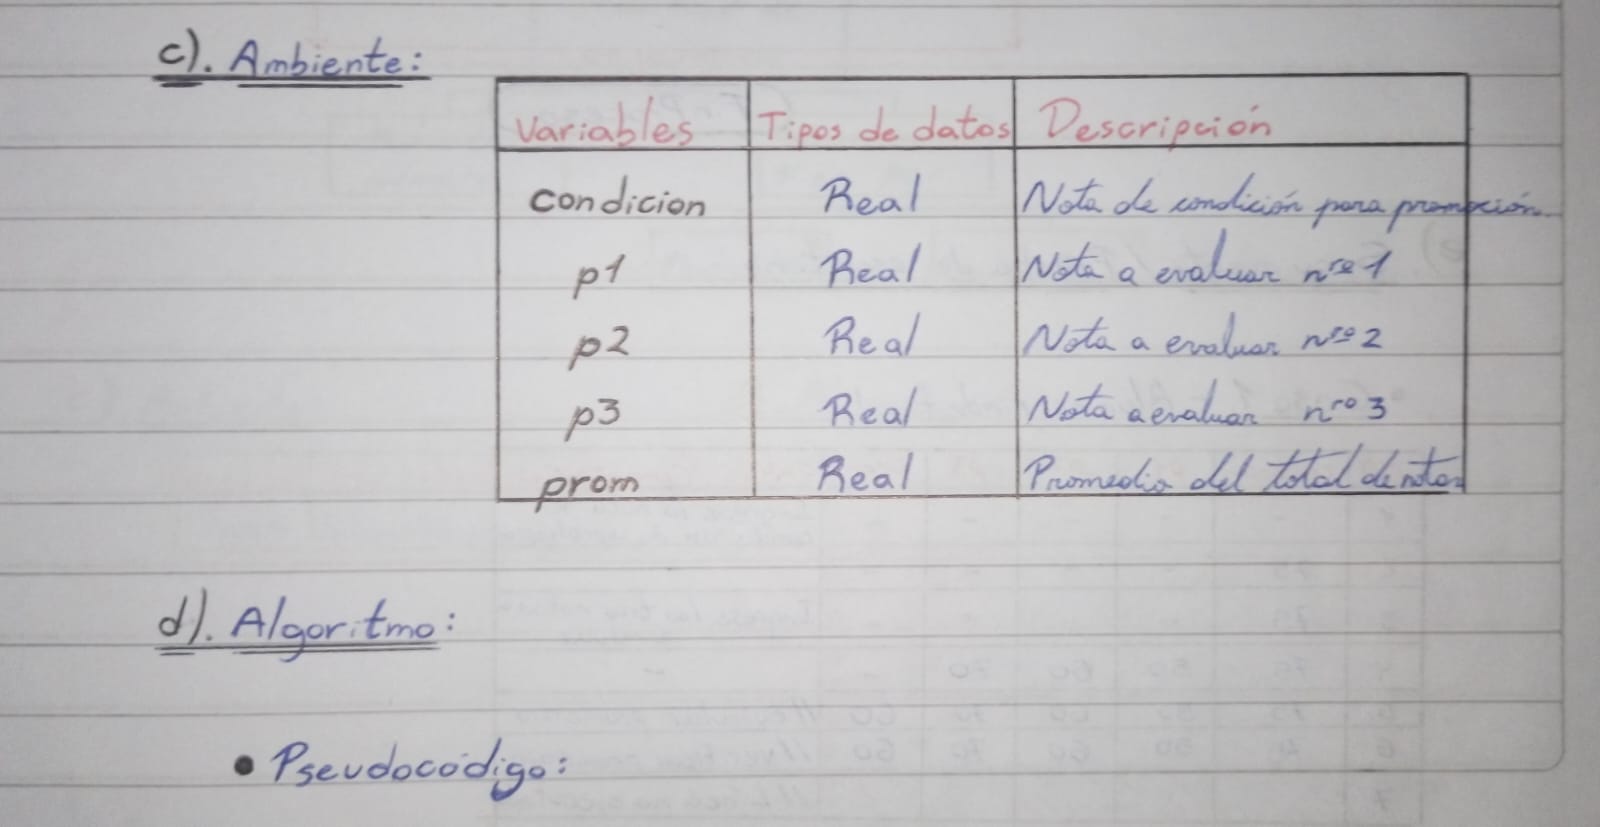 c). Ambiente:
Variables Tipos de datos Descripción
condicion Real Nota de condición para promoción.
p1 Real Nota a evaluar nro 1
p2 Real Nota a evaluar nro 2
p3 Real Nota a evaluar nro 3
prom Real Promedio del total de notas
d). Algoritmo:
• Pseudocódigo: